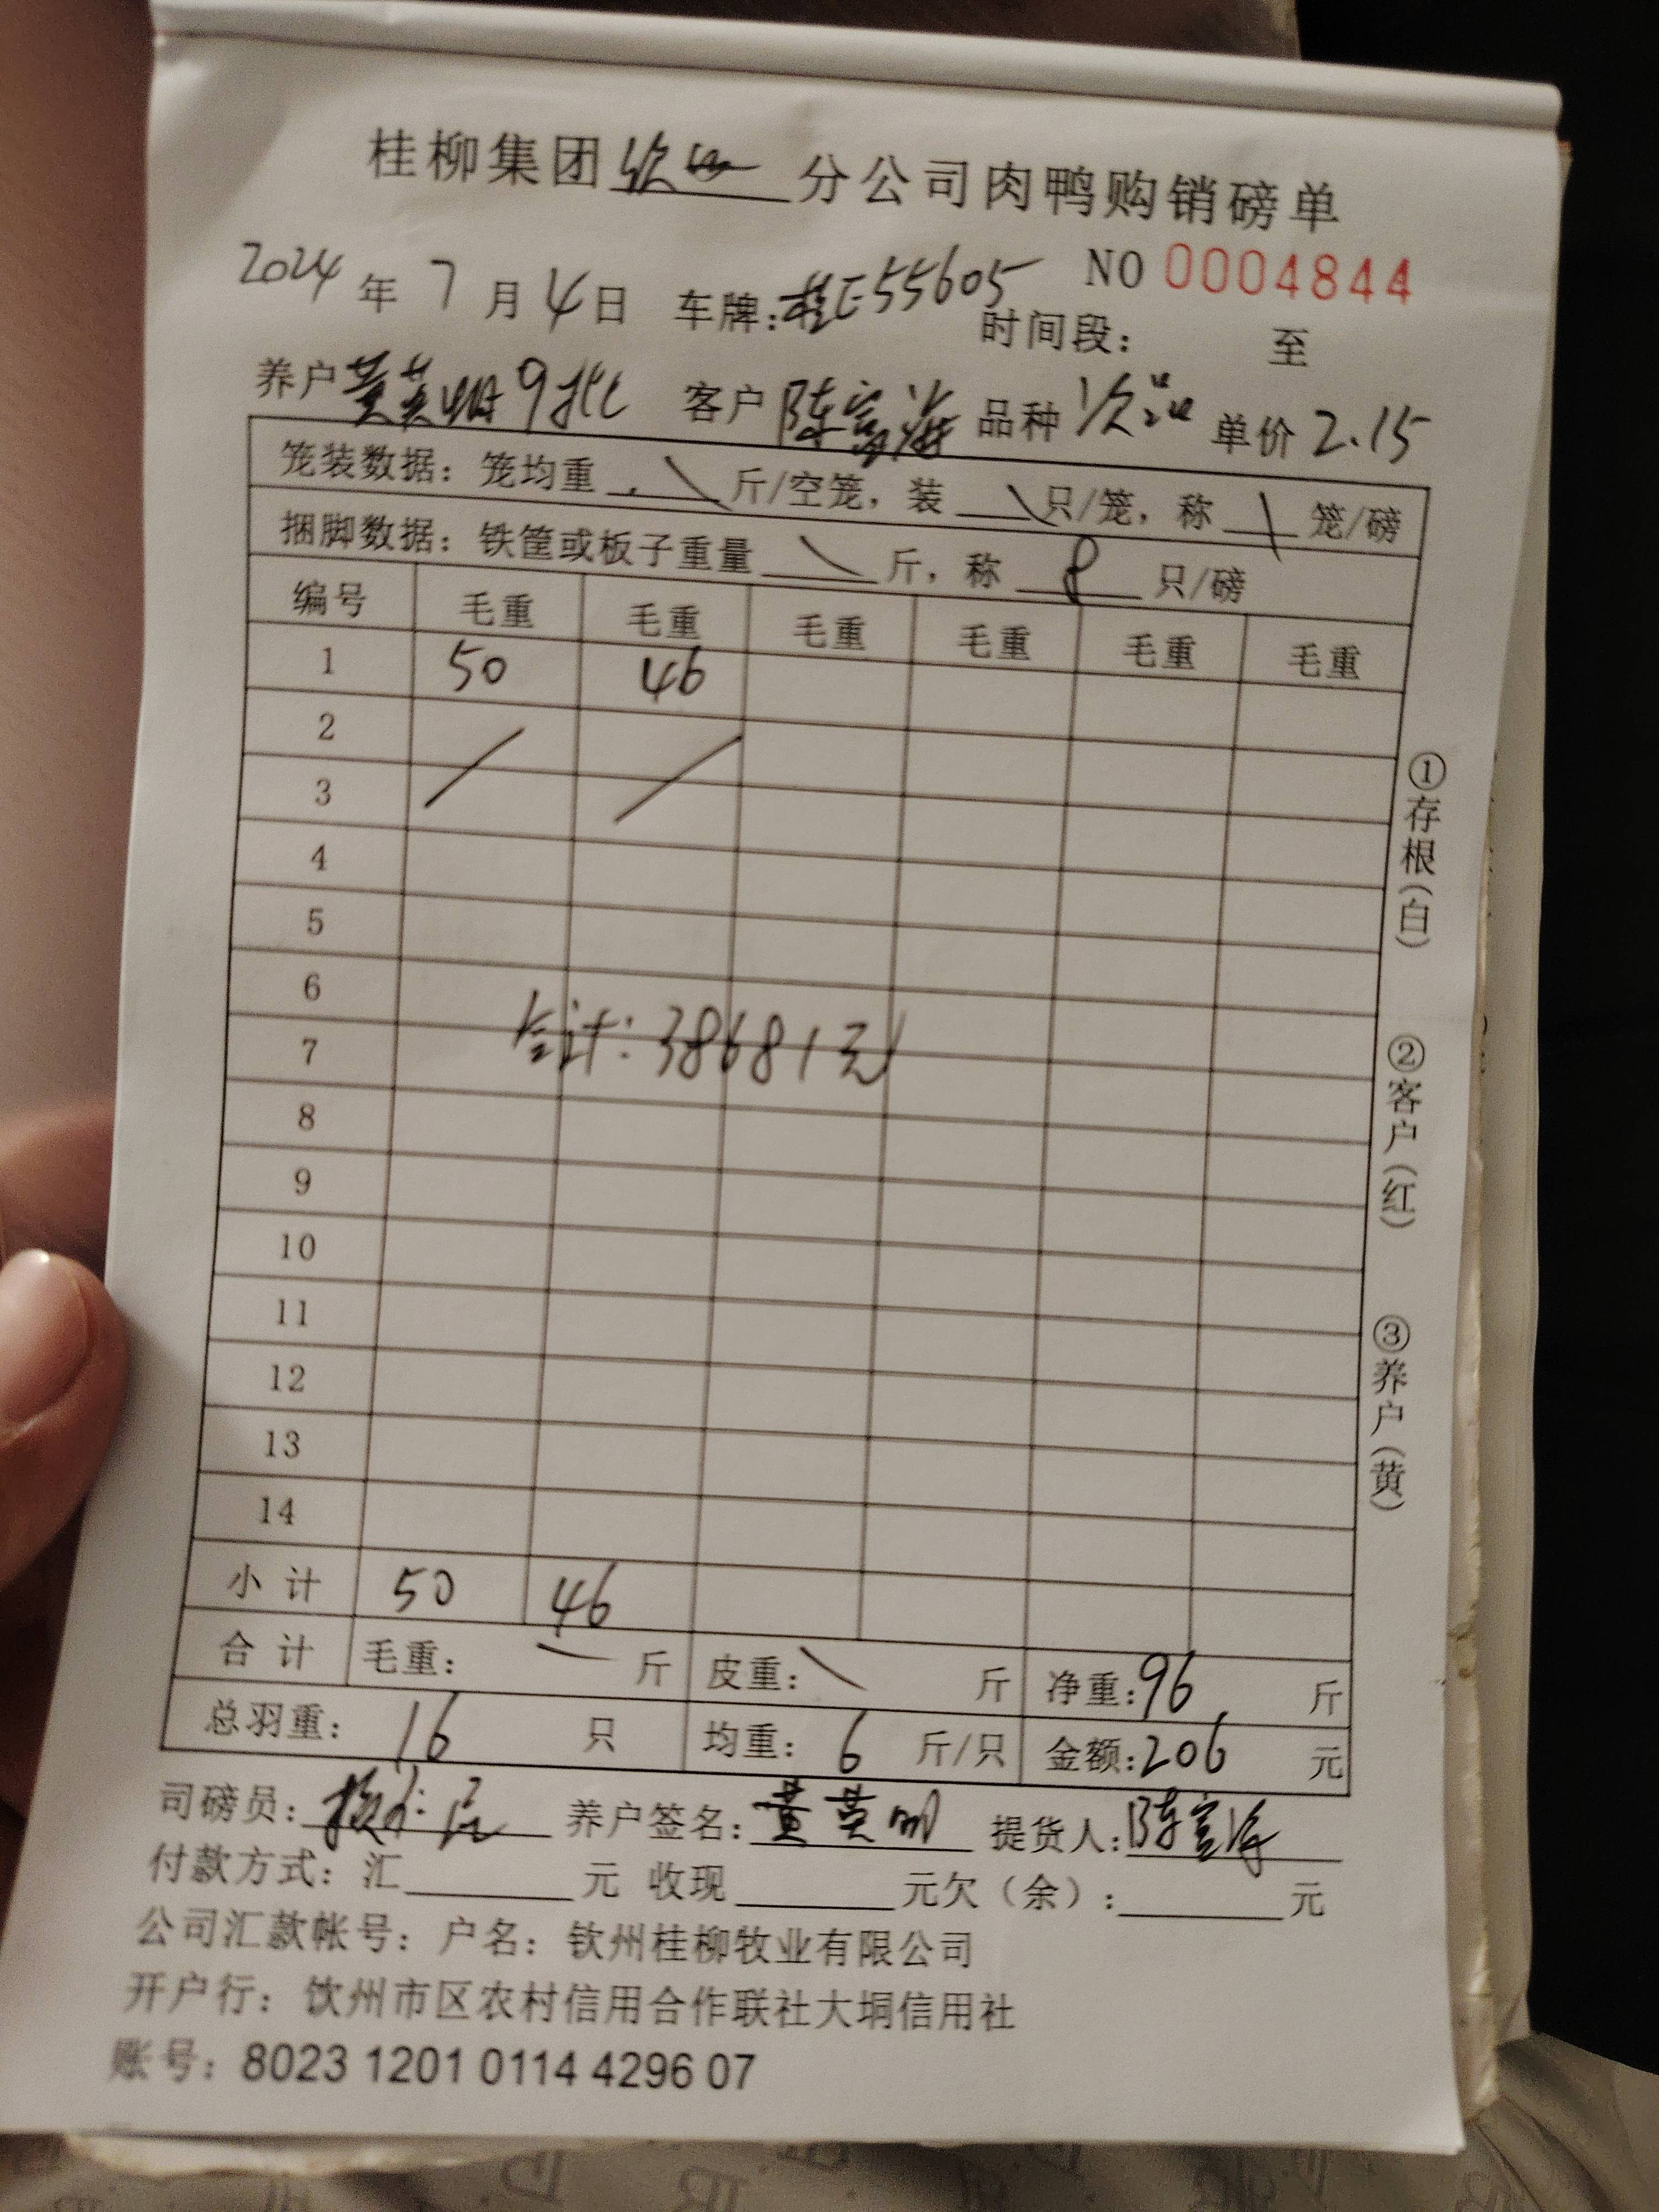 桂柳集团钦州分公司肉鸭购销磅单
NO 0004844
2024年7月4日 车牌:桂E55605 时间段: 至
养户黄英明9批 客户陈富海 品种次品 单价2.15
笼装数据:笼均重\斤/空笼,装\只/笼,称\笼/磅
捆脚数据:铁筐或板子重量\斤,称8只/磅
编号 毛重 毛重 毛重 毛重 毛重 毛重
1 50 46
2
3
4
5
6
合计:38681元
7
8
9
10
11
12
13
14
小计 50 46
合计 毛重: 斤 皮重:\ 斤 净重:96 斤
总羽重:16 只 均重:6 斤/只 金额:206 元
司磅员: 养户签名:黄英明 提货人:陈富海
付款方式:汇 元 收现 元欠(余): 元
公司汇款帐号:户名:钦州桂柳牧业有限公司
开户行:钦州市区农村信用合作联社大垌信用社
账号:8023 1201 0114 4296 07
①存根(白)
②客户(红)
③养户(黄)